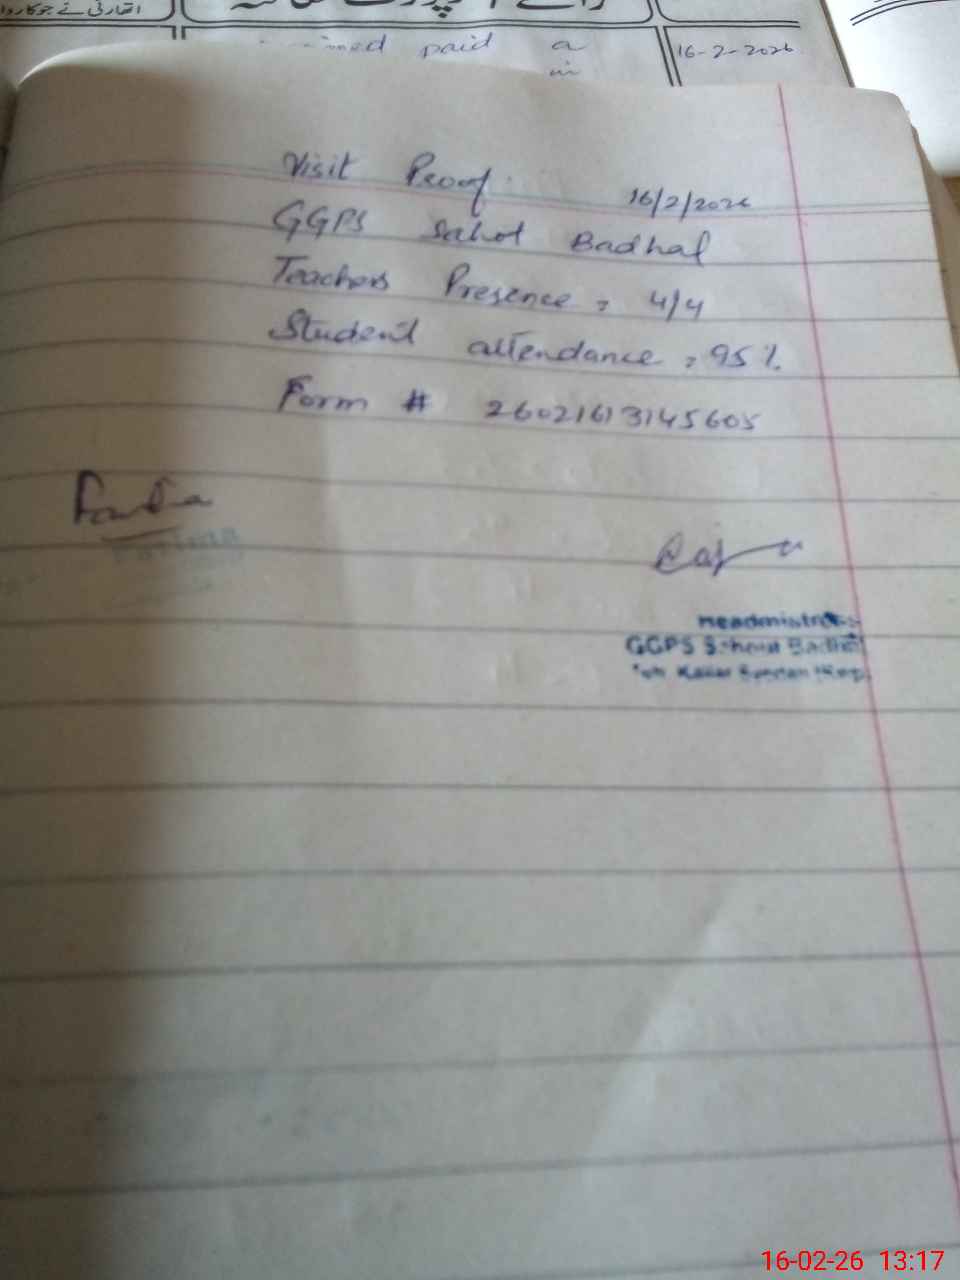 اتھارٹی نے جو کاروا
paid a
16-2-2026
in
Visit Proof.
16/2/2026
GGPS Sahot Badhal
Teachers Presence = 4/4
Student attendance = 95%
Form # 26021613145605
Headmistress
GGPS Sahout Badhal
Teh Kallar Syedan (Rwp)
16-02-26 13:17